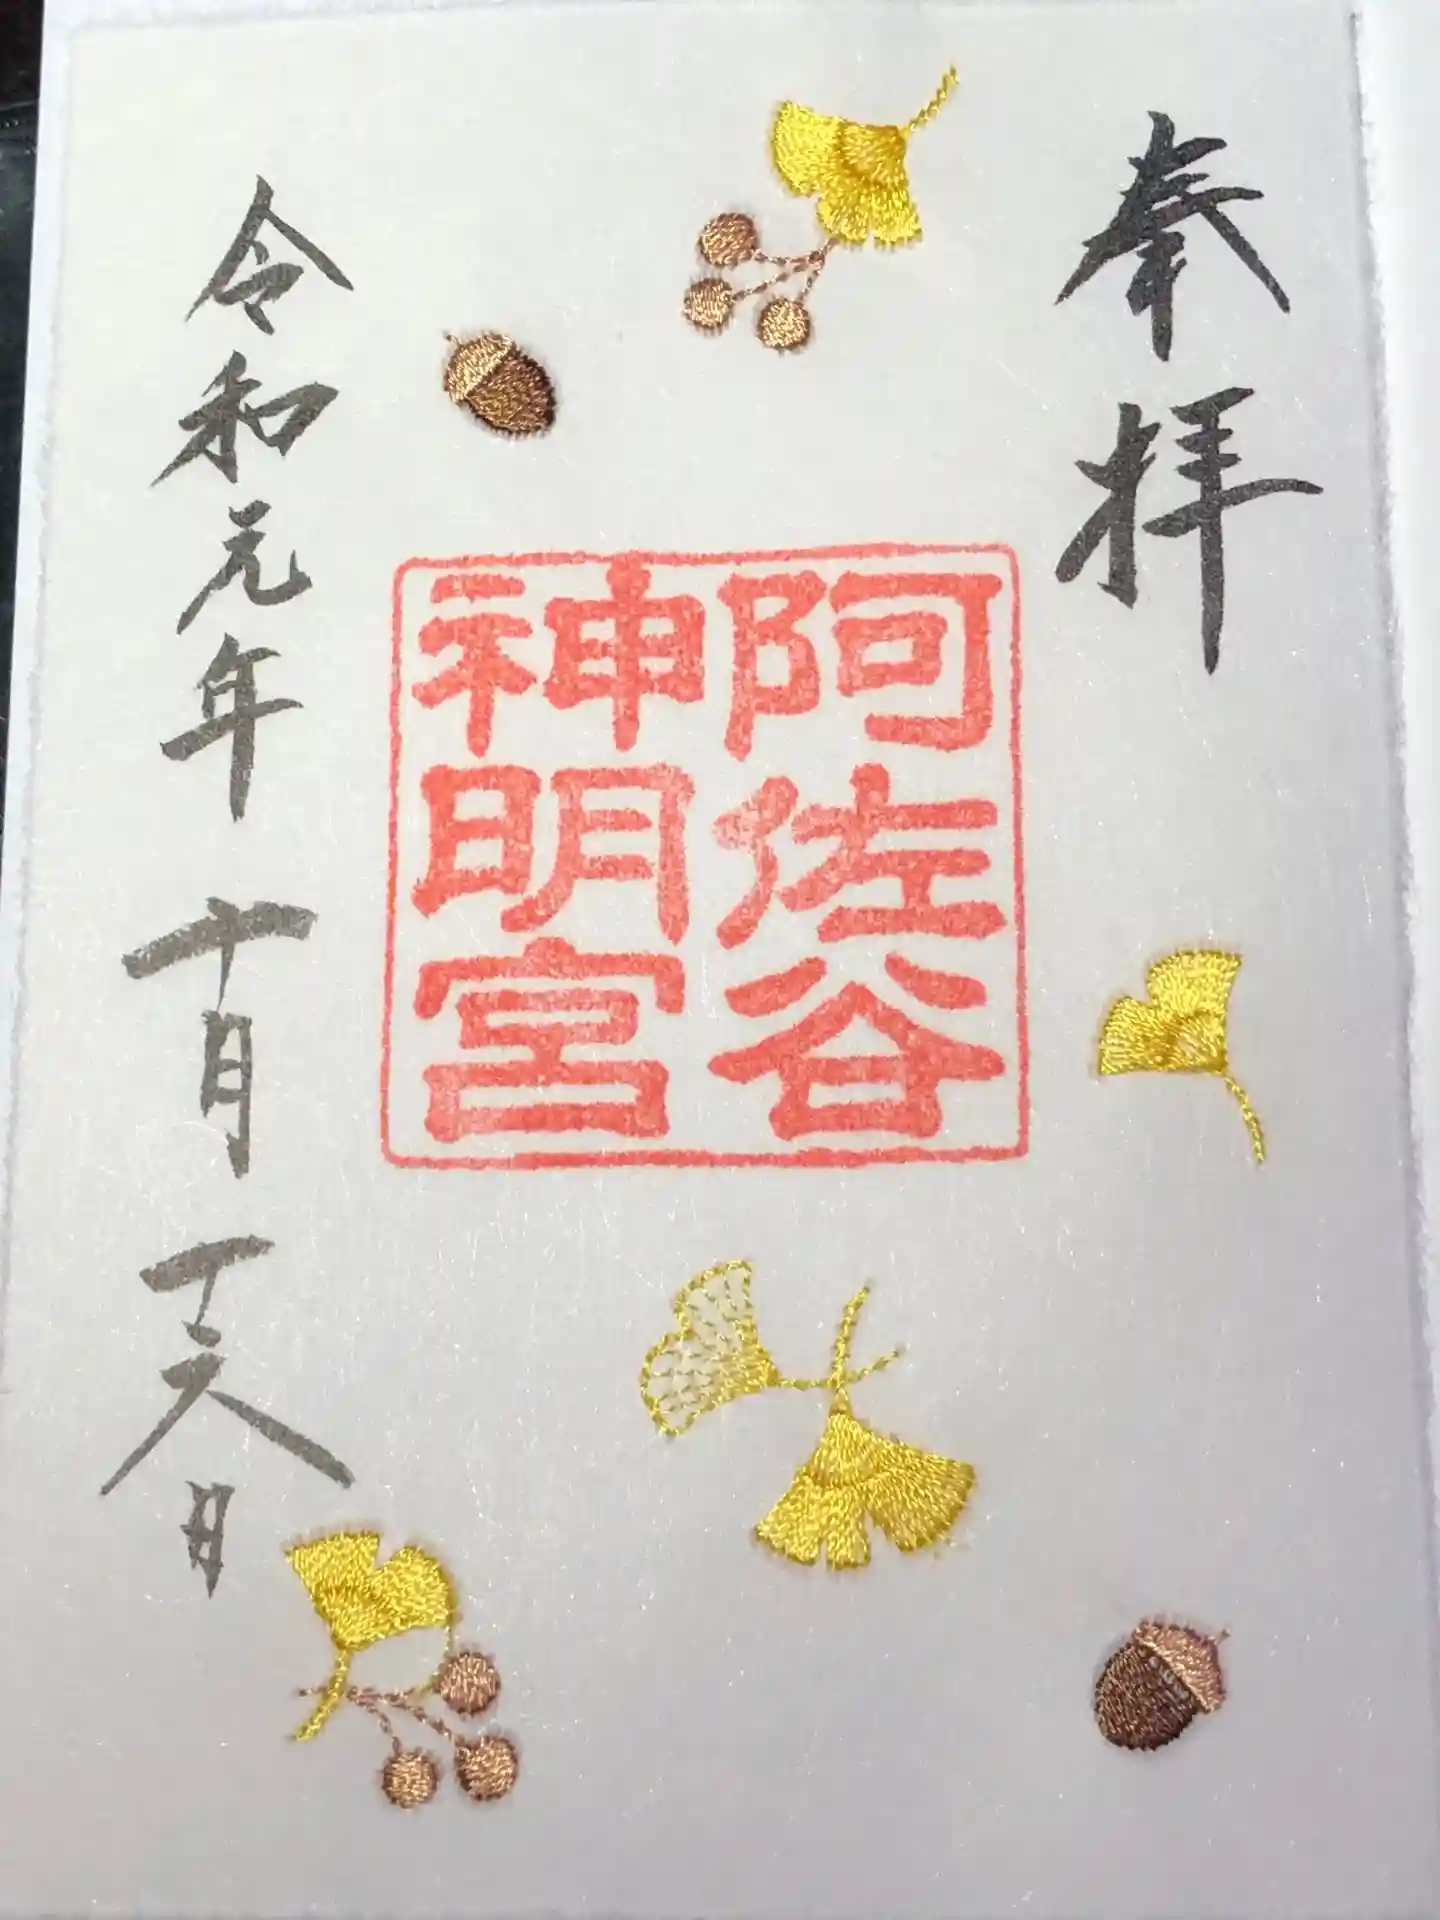 奉拝
阿佐谷
神明宮
令和元年 十月 十六日